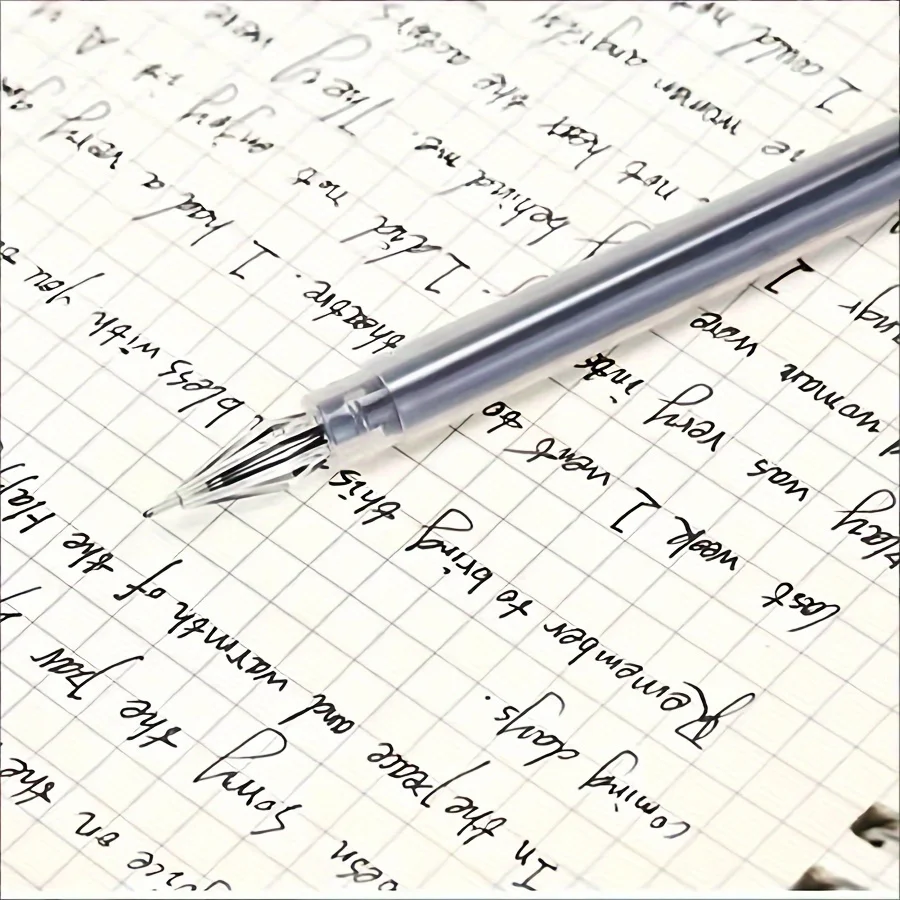 on the
Sorry the
In the peace and warmth of the
coming days.
Remember to bring this bless with you
Last week I went to theatre. I had a very
play was very I did not enjoy it. A
woman were behind me. They were
I not hear the actors
woman angrily
I could not